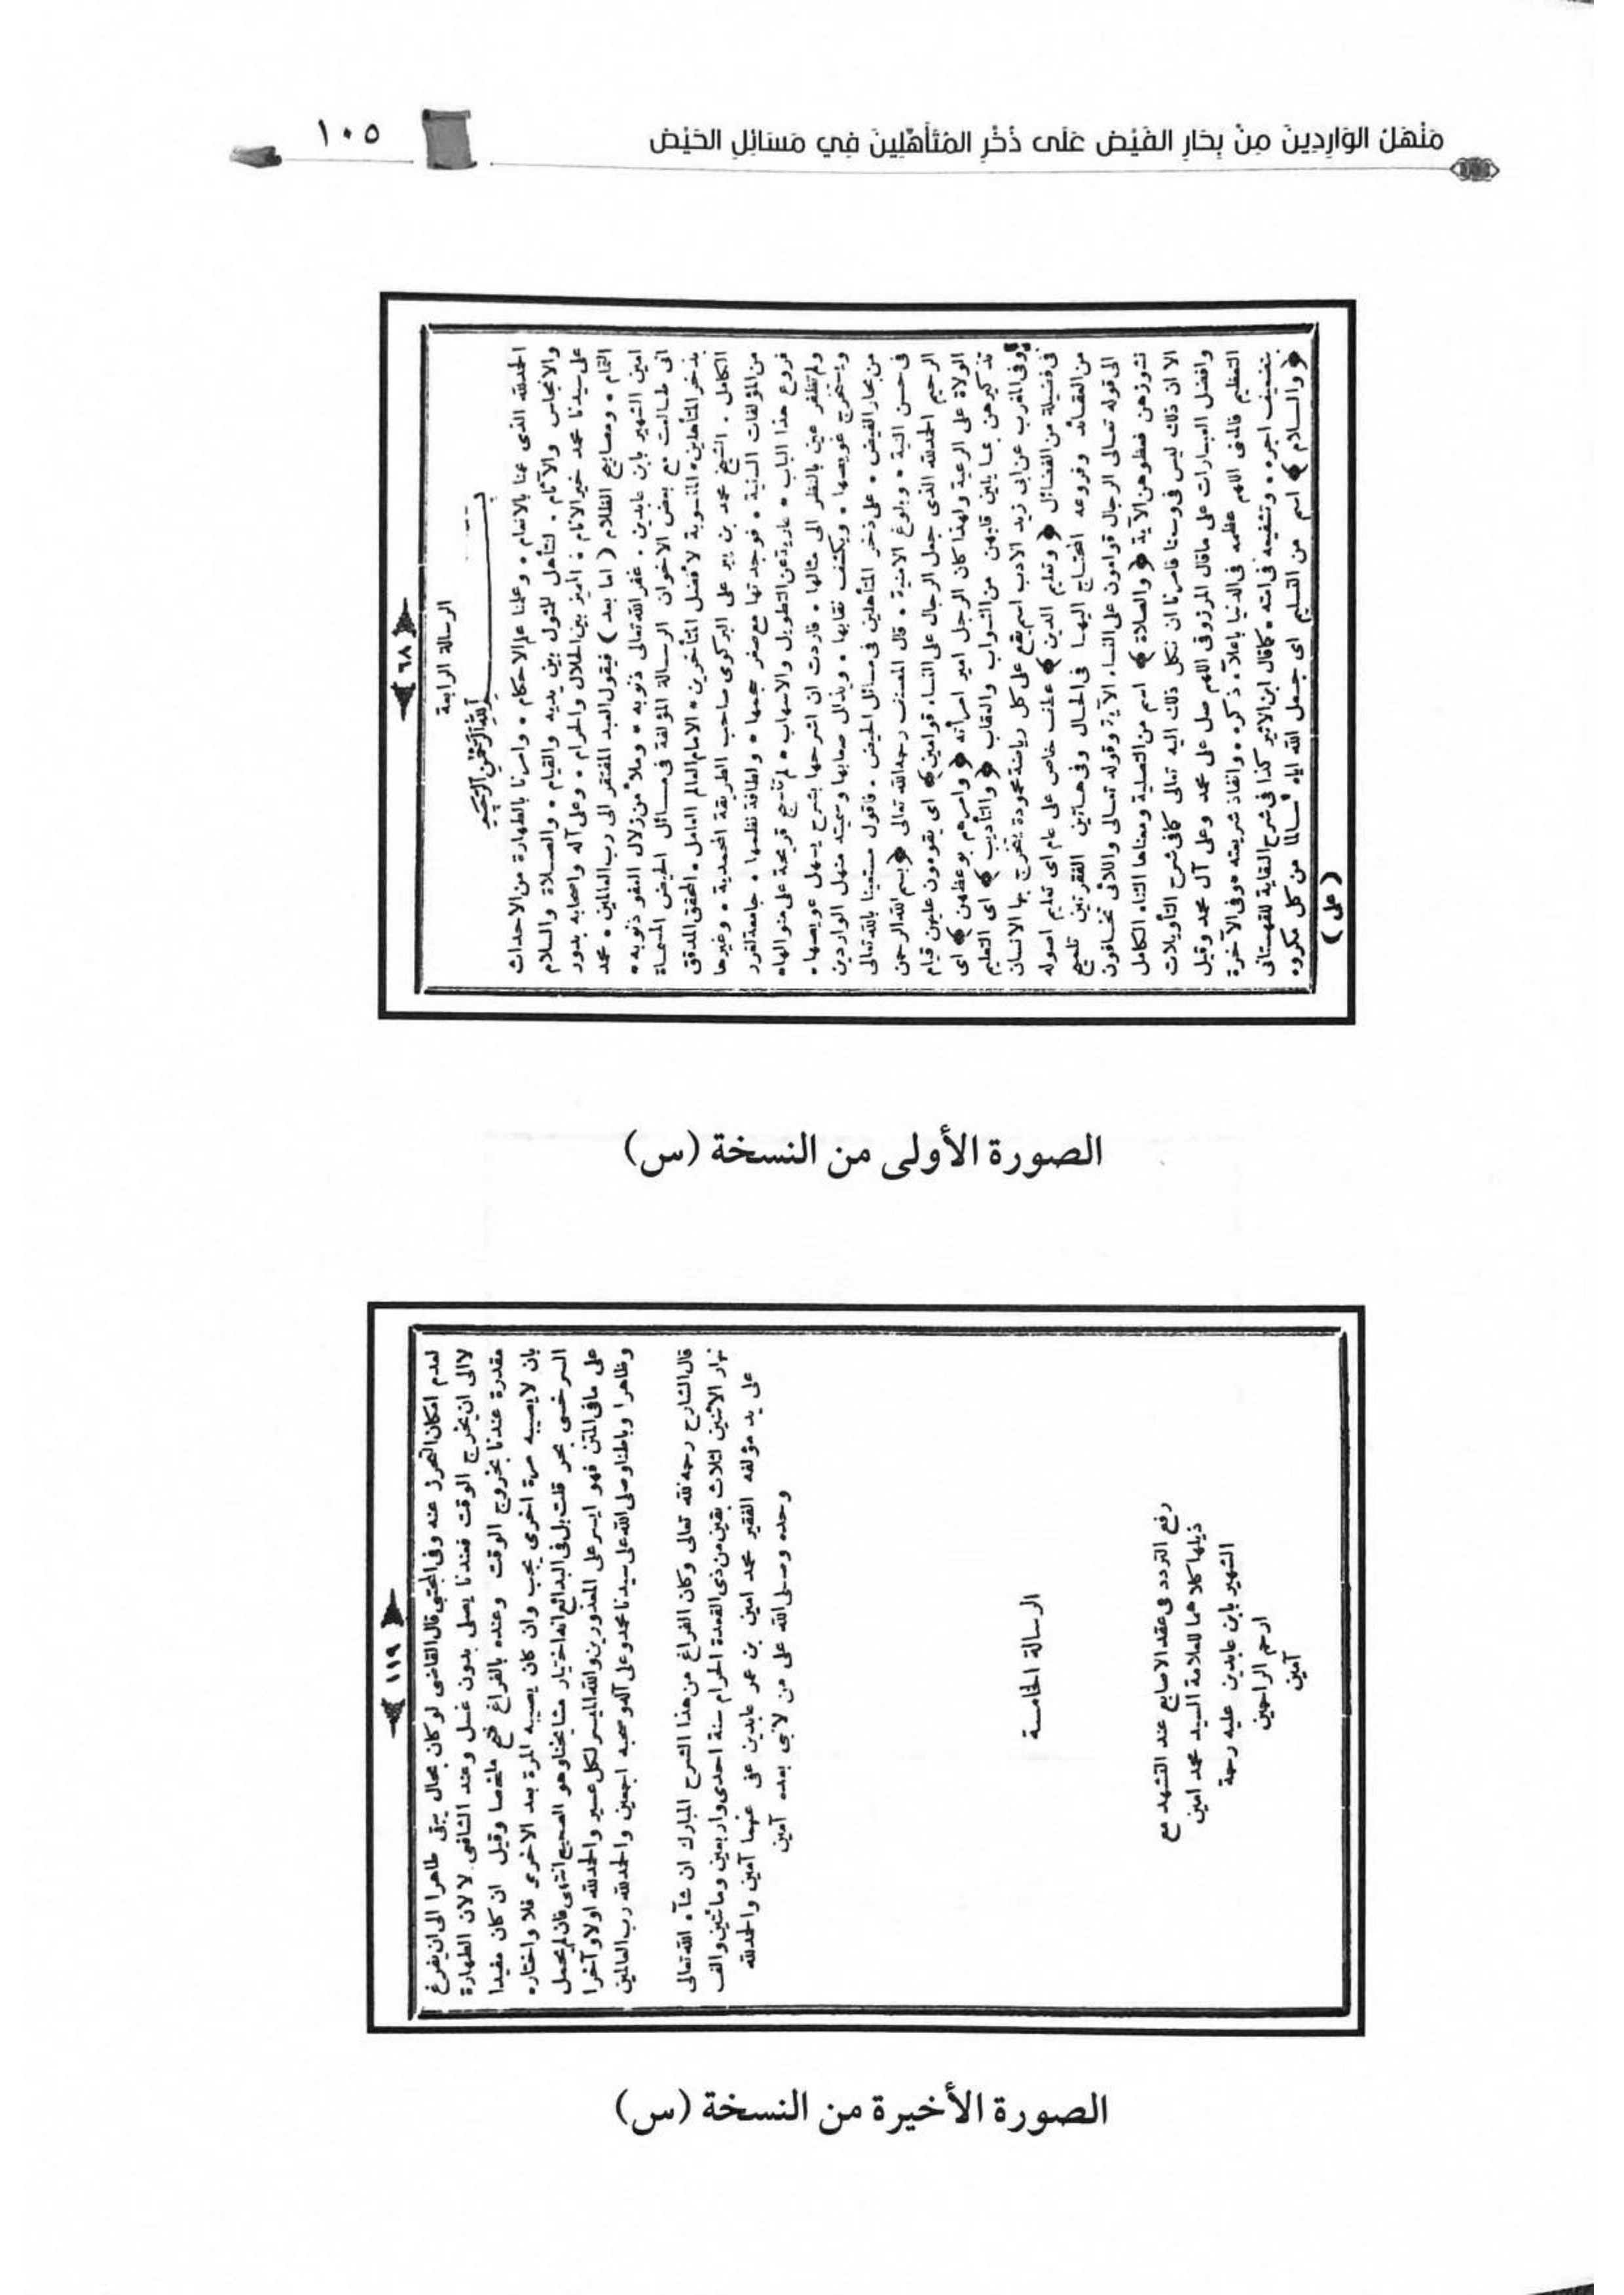 مَنْهَلُ الوَارِدِينَ مِنْ بِحَارِ الفَيْضِ عَلَى ذُخْرِ المُتَأَهِّلِينَ فِي مَسَائِلِ الحَيْضِ
١٠٥
﴿ ٦٨ ﴾
الرسالة الرابعة
بسم الله الرحمن الرحيم
الحمدلله الذى عمنا بالانعام • وعلمنا علم الاحكام • وامرنا بالطهارة من الاحداث
والانجاس والآثام • لنتأهل للمثول بين يديه والقيام • والصلاة والسلام
على سيدنا محمد خير الانام • المميز بين الحلال والحرام • وعلى آله واصحابه بدور
التمام • ومصابيح الظلام ( اما بعد ) فيقول العبد المفتقر الى رب العالمين • محمد
امين الشهير بابن عابدين • غفر الله تعالى ذنوبه • وملأ من زلال العفو ذنوبه •
انى طالعت مع بعض الاخوان الرسالة المؤلفة فى مسائل الحيض المسماة
بذخر المتأهلين • المنسوبة لافضل المتأخرين • الامام العالم العامل • المحقق المدقق
الكامل • الشيخ محمد بن بير على البركوى صاحب الطريقة المحمدية • وغيرها
من المؤلفات السنية • فوجدتها مع صغر حجمها • ولطافة نظمها • جامعة لغرر
فروع هذا الباب • عارية عن التطويل والاسهاب • لم تنسج قريحة على منوالها •
ولم تظفر عين بالنظر الى مثالها • فاردت ان اشرحها بشرح يسهل عويصها •
ويستخرج غويصها • ويكشف نقابها • ويذلل صعابها وسميته منهل الواردين
من بحار الفيض • على ذخر المتأهلين فى مسائل الحيض • فاقول مستعينا بالله تعالى
فى حسن النية • وبلوغ الامنية • قال المصنف رحمه الله تعالى ﴿ بسم الله الرحمن
الرحيم الحمدلله الذى جعل الرجال على النساء قوامين ﴾ اى يقومون عليهن قيام
الولاة على الرعية ولهذا كان الرجل امير امرأته ﴿ وامرهم بوعظهن ﴾ اى
تذكيرهن بما يلين قلبهن من الثواب والعقاب ﴿ والتأديب ﴾ اى التعليم
وفى المغرب عن ابى زيد الادب اسم يقع على كل رياضة محمودة يتخرج بها الانسان
فى فضيلة من الفضائل ﴿ وتعليم الدين ﴾ عطف خاص على عام اى تعليم اصوله
من العقائد وفروعه المحتاج اليها فى الحال وفى هاتين الفقرتين تلميح
الى قوله تعالى الرجال قوامون على النساء الآية وقوله تعالى واللاتى تخافون
نشوزهن فعظوهن الآية ﴿ والصلاة ﴾ اسم من التصلية ومعناها الثناء الكامل
الا ان ذلك ليس فى وسعنا فامرنا ان نكل ذلك اليه تعالى كافى شرح التأويلات
وافضل العبارات على ماقال المرزوقى اللهم صل على محمد وعلى آل محمد وقيل
التعظيم فالمعنى اللهم عظمه فى الدنيا باعلاء ذكره • وانفاذ شريعته • وفى الآخرة
بتضعيف اجره • وتشفيعه فى امته • كماقال ابن الاثير كذا فى شرح النقاية للقهستانى
﴿ والسلام ﴾ اسم من التسليم اى جعل الله اياه سالما من كل مكروه
( على )
الصورة الأولى من النسخة (س)
﴿ ١١٩ ﴾
لعدم امكان التحرز عنه وفى المجتبى قال القاضى لوكان بحال يبقى طاهرا الى ان يفرغ
لا الى ان يخرج الوقت فعندنا يصلى بدون غسل وعند الشافعى لا لان الطهارة
مقدرة عندنا بخروج الوقت وعنده بالفراغ فتح ملخصا وقيل ان كان مفيدا
بان لايصيبه مرة اخرى يجب وان كان يصيبه المرة بعد الاخرى فلا واختاره
السرخسى بحر قلت بل فى البدائع انه اختيار مشايخنا وهو الصحيح انتهى فان لم يحمل
على مافى المتن فهو ايسر على المعذورين والله الميسر لكل عسير والحمدلله اولا وآخرا
وظاهرا وباطنا وصلى الله على سيدنا محمد وعلى آله وصحبه اجمعين والحمدلله رب العالمين
قال الشارح رحمه الله تعالى وكان الفراغ من هذا الشرح المبارك ان شآء الله تعالى
نهار الاثنين لثلاث بقين من ذى القعدة الحرام سنة احدى واربعين ومائتين والف
على يد مؤلفه الفقير محمد امين بن عمر عابدين عفى عنهما آمين والحمدلله
وحده وصلى الله على من لانبى بعده آمين
الرسالة الخامسة
رفع التردد فى عقد الاصابع عند التشهد مع
ذيلها كلاهما للعلامة السيد محمد امين
الشهير بابن عابدين عليه رحمة
ارحم الراحمين
آمين
الصورة الأخيرة من النسخة (س)